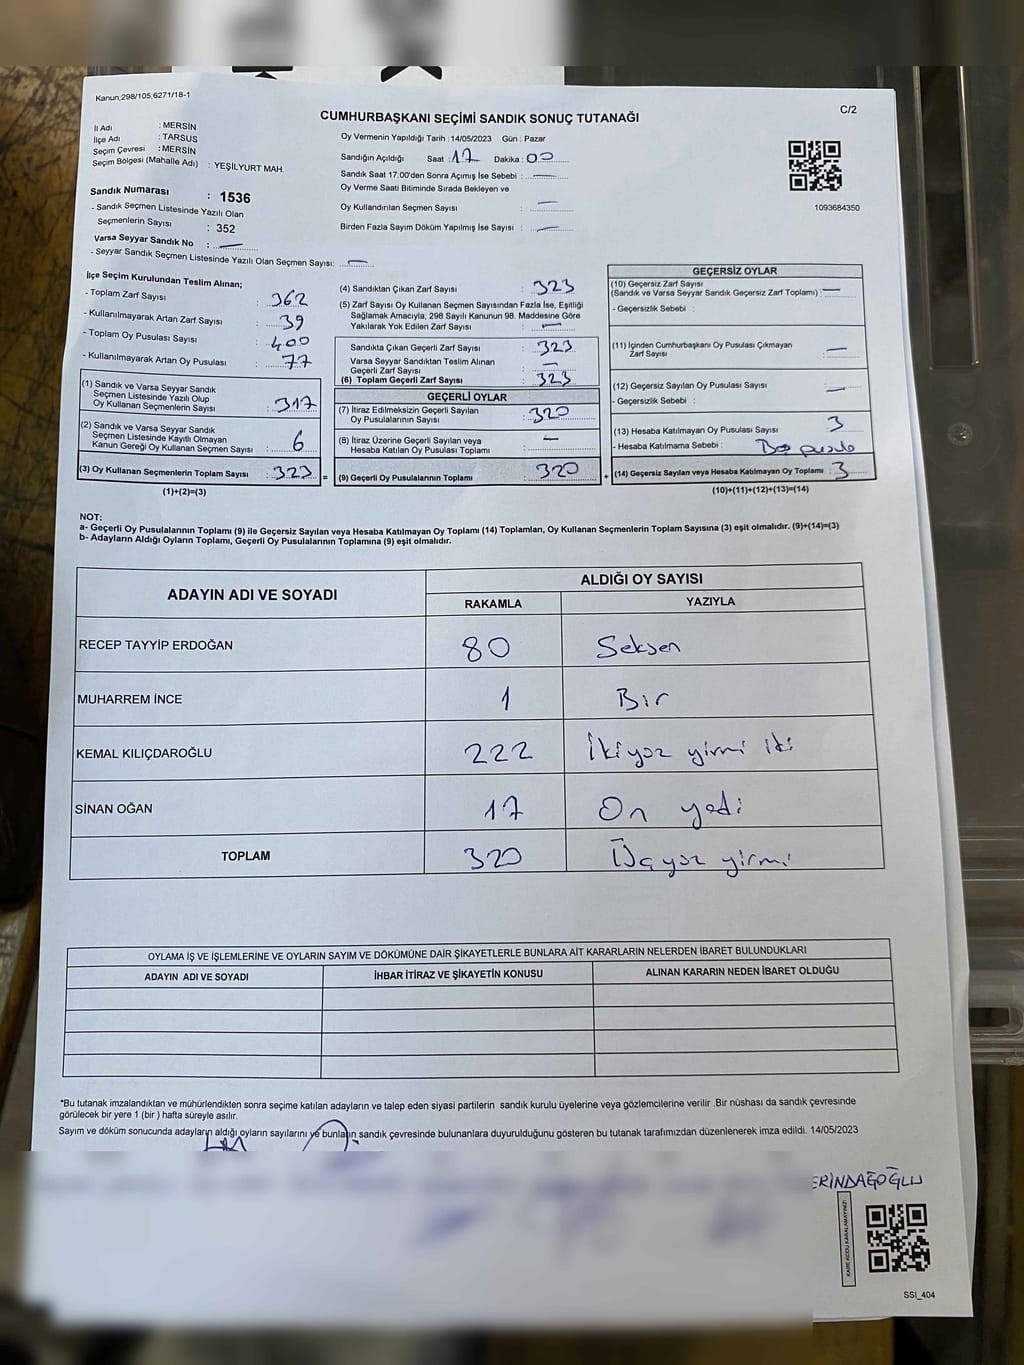 Kanun;298/105,6271/18-1
C/2
CUMHURBAŞKANI SEÇİMİ SANDIK SONUÇ TUTANAĞI
İl Adı : MERSİN
İlçe Adı : TARSUS
Seçim Çevresi : MERSİN
Seçim Bölgesi (Mahalle Adı) : YEŞİLYURT MAH.
Sandık Numarası : 1536
- Sandık Seçmen Listesinde Yazılı Olan
Seçmenlerin Sayısı : 352
Varsa Seyyar Sandık No : —
- Seyyar Sandık Seçmen Listesinde Yazılı Olan Seçmen Sayısı: —
Oy Vermenin Yapıldığı Tarih : 14/05/2023 Gün : Pazar
Sandığın Açıldığı Saat : 17 Dakika : 00
Sandık Saat 17.00'den Sonra Açımış İse Sebebi : —
Oy Verme Saati Bitiminde Sırada Bekleyen ve
Oy Kullandırılan Seçmen Sayısı : —
Birden Fazla Sayım Döküm Yapılmış İse Sayısı : —
1093684350
İlçe Seçim Kurulundan Teslim Alınan;
- Toplam Zarf Sayısı : 362
- Kullanılmayarak Artan Zarf Sayısı : 39
- Toplam Oy Pusulası Sayısı : 400
- Kullanılmayarak Artan Oy Pusulası : 77
(1) Sandık ve Varsa Seyyar Sandık
Seçmen Listesinde Yazılı Olup
Oy Kullanan Seçmenlerin Sayısı : 317
(2) Sandık ve Varsa Seyyar Sandık
Seçmen Listesinde Kayıtlı Olmayan
Kanun Gereği Oy Kullanan Seçmen Sayısı : 6
(3) Oy Kullanan Seçmenlerin Toplam Sayısı : 323 =
(1)+(2)=(3)
(4) Sandıktan Çıkan Zarf Sayısı : 323
(5) Zarf Sayısı Oy Kullanan Seçmen Sayısından Fazla İse, Eşitliği
Sağlamak Amacıyla; 298 Sayılı Kanunun 98. Maddesine Göre
Yakılarak Yok Edilen Zarf Sayısı : —
Sandıkta Çıkan Geçerli Zarf Sayısı : 323
Varsa Seyyar Sandıktan Teslim Alınan
Geçerli Zarf Sayısı : —
(6) Toplam Geçerli Zarf Sayısı : 323
GEÇERLİ OYLAR
(7) İtiraz Edilmeksizin Geçerli Sayılan
Oy Pusulalarının Sayısı : 320
(8) İtiraz Üzerine Geçerli Sayılan veya
Hesaba Katılan Oy Pusulası Toplamı : —
(9) Geçerli Oy Pusulalarının Toplamı : 320 +
GEÇERSİZ OYLAR
(10) Geçersiz Zarf Sayısı
(Sandık ve Varsa Seyyar Sandık Geçersiz Zarf Toplamı) : —
- Geçersizlik Sebebi :
(11) İçinden Cumhurbaşkanı Oy Pusulası Çıkmayan
Zarf Sayısı : —
(12) Geçersiz Sayılan Oy Pusulası Sayısı : —
- Geçersizlik Sebebi :
(13) Hesaba Katılmayan Oy Pusulası Sayısı : 3
- Hesaba Katılmama Sebebi : Boş pusula
(14) Geçersiz Sayılan veya Hesaba Katılmayan Oy Toplamı : 3
(10)+(11)+(12)+(13)=(14)
NOT:
a- Geçerli Oy Pusulalarının Toplamı (9) ile Geçersiz Sayılan veya Hesaba Katılmayan Oy Toplamı (14) Toplamları, Oy Kullanan Seçmenlerin Toplam Sayısına (3) eşit olmalıdır. (9)+(14)=(3)
b- Adayların Aldığı Oyların Toplamı, Geçerli Oy Pusulalarının Toplamına (9) eşit olmalıdır.
ADAYIN ADI VE SOYADI
ALDIĞI OY SAYISI
RAKAMLA YAZIYLA
RECEP TAYYİP ERDOĞAN 80 Seksen
MUHARREM İNCE 1 Bir
KEMAL KILIÇDAROĞLU 222 İkiyüz yirmi iki
SİNAN OĞAN 17 On yedi
TOPLAM 320 Üçyüz yirmi
OYLAMA İŞ VE İŞLEMLERİNE VE OYLARIN SAYIM VE DÖKÜMÜNE DAİR ŞİKAYETLERLE BUNLARA AİT KARARLARIN NELERDEN İBARET BULUNDUKLARI
ADAYIN ADI VE SOYADI İHBAR İTİRAZ VE ŞİKAYETİN KONUSU ALINAN KARARIN NEDEN İBARET OLDUĞU
*Bu tutanak imzalandıktan ve mühürlendikten sonra seçime katılan adayların ve talep eden siyasi partilerin sandık kurulu üyelerine veya gözlemcilerine verilir .Bir nüshası da sandık çevresinde
görülecek bir yere 1 (bir ) hafta süreyle asılır.
Sayım ve döküm sonucunda adayların aldığı oyların sayılarını ve bunların sandık çevresinde bulunanlara duyurulduğunu gösteren bu tutanak tarafımızdan düzenlenerek imza edildi. 14/05/2023
ERİNDAĞOĞLU
KARE KODU KARALAMAYINIZ!
SSI_404